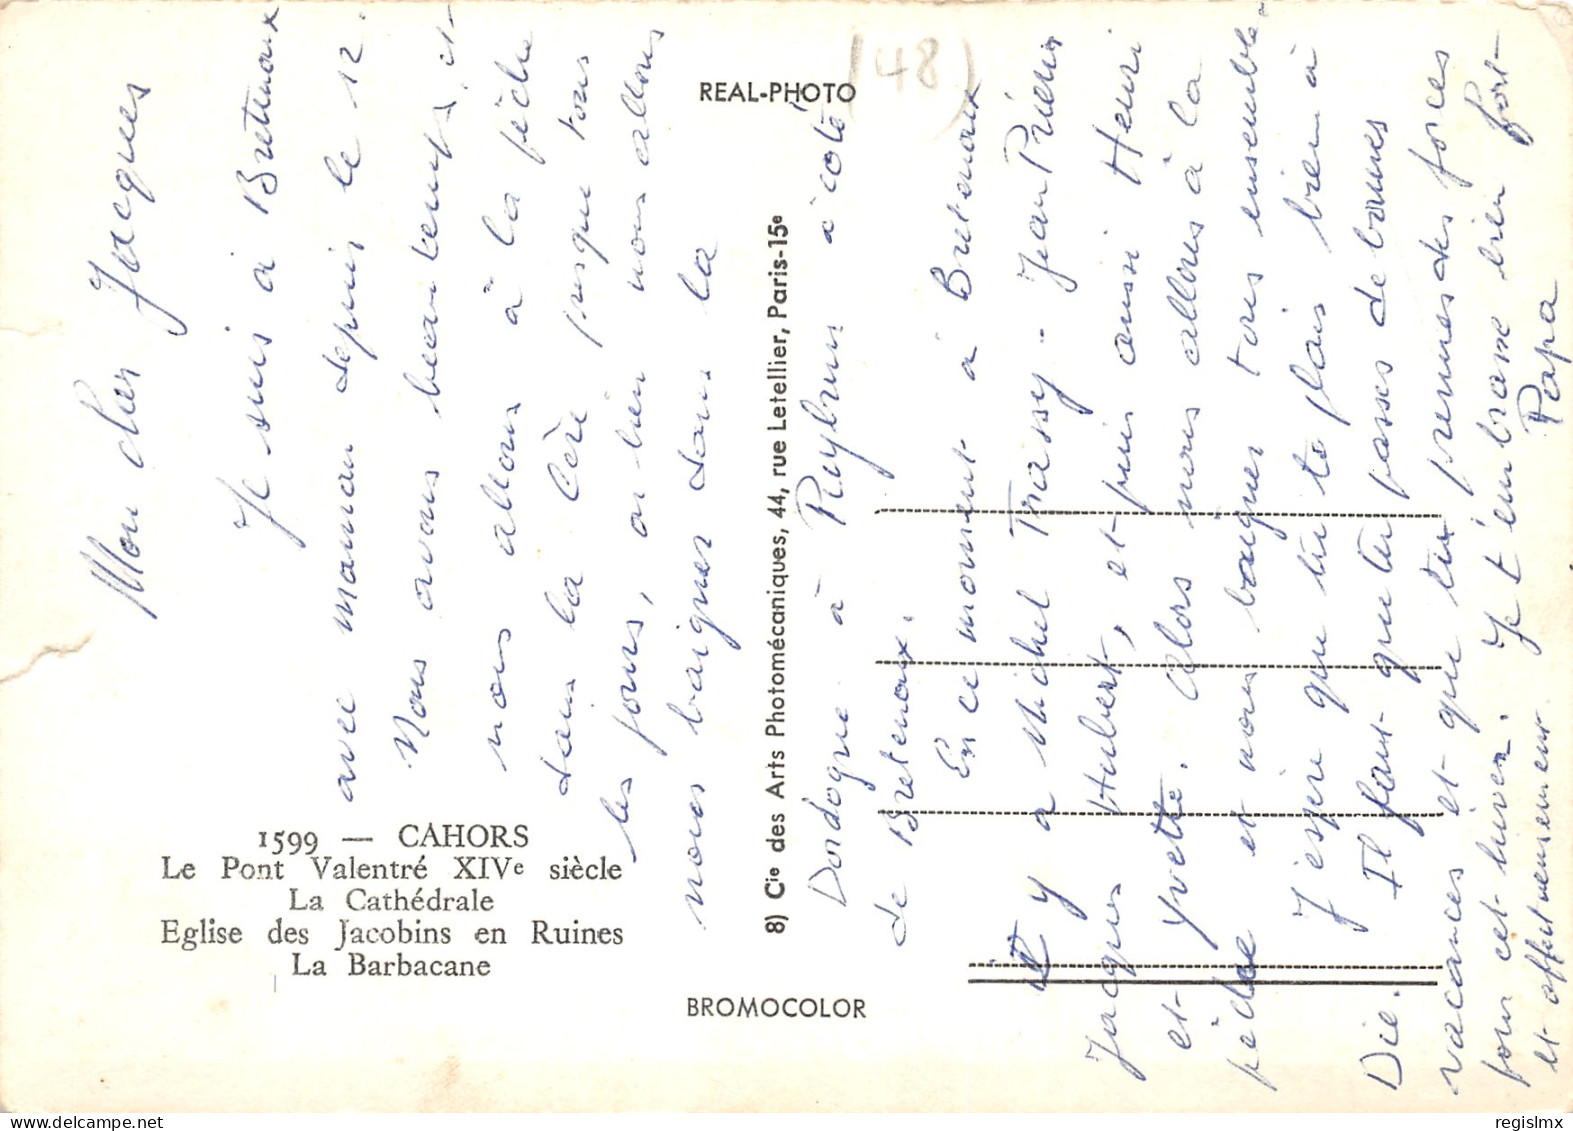 Mon cher Jacques
Je suis à Bretenoux
avec maman depuis le 12.
Nous avons beau temps, et
nous allons à la pêche
dans la Cère presque tous
les jours, ou bien nous allons
nous baigner dans la
Dordogne à Puybrun à coté
de Bretenoux.
En ce moment à Bretenoux
Il y a Michel Trassy - Jean Prieur
Jacques Hubert, et puis aussi Henri
et Yvette. Alors nous allons à la
pêche et nous baigner tous ensemble.
J'espère que tu te plais bien à
Die. Il faut que tu passes de bonnes
vacances et que tu prennes des forces
pour cet hiver. Je t'embrasse bien fort
et affectueusement
Papa
(48)
REAL-PHOTO
8) Cie des Arts Photomécaniques, 44, rue Letellier, Paris-15e
1599 — CAHORS
Le Pont Valentré XIVe siècle
La Cathédrale
Eglise des Jacobins en Ruines
La Barbacane
BROMOCOLOR
regislmx